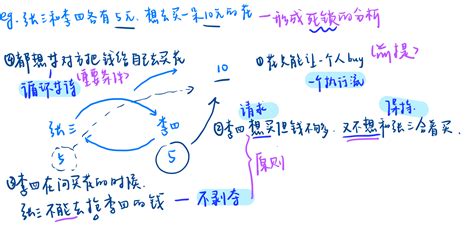 eg. 张三和李四各有5元, 想去买一朵10元的花 — 形成死锁的分析
④都想要对方把钱给自己去买花
循环等待(重要条件)
10
①花只能让一个人buy(前提)
一个执行流
张三
李四
5
5
请求
保持
②李四想买但钱不够, 又不想和张三合着买
原则
③李四在问买花的时候,
张三不能去抢李四的钱 — 不剥夺